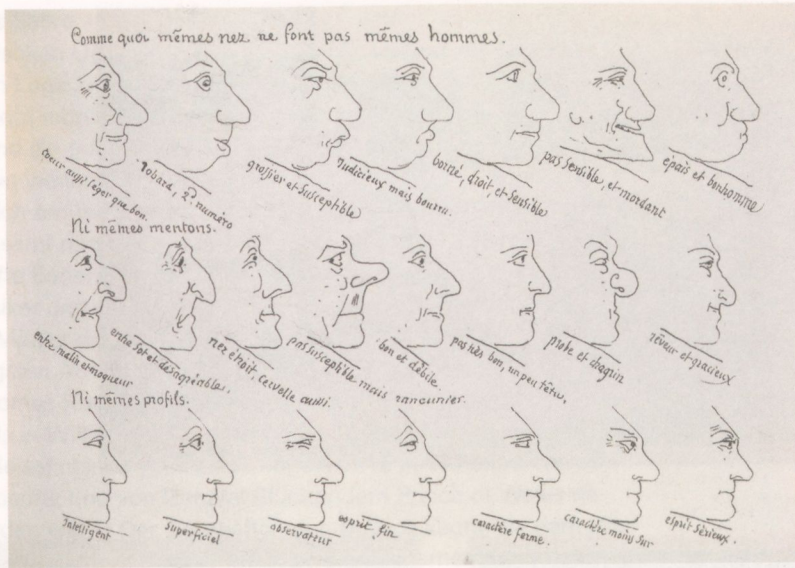 Comme quoi mêmes nez ne font pas mêmes hommes.
coeur aussi léger que bon.
Jobard, 2d. numéro
grossier et susceptible
Judicieux mais bourru.
borné, droit, et sensible
pas sensible, et mordant
épais et bonhomme
Ni mêmes mentons.
entre malin et moqueur
entre sot et désagréable.
nez étroit, cervelle aussi.
pas susceptible mais rancunier.
bon et débile.
pas très bon, un peu têtu.
probe et chagrin
rêveur et gracieux
Ni mêmes profils.
Intelligent
superficiel
observateur
esprit fin
caractère ferme.
caractère moins sûr
esprit sérieux.